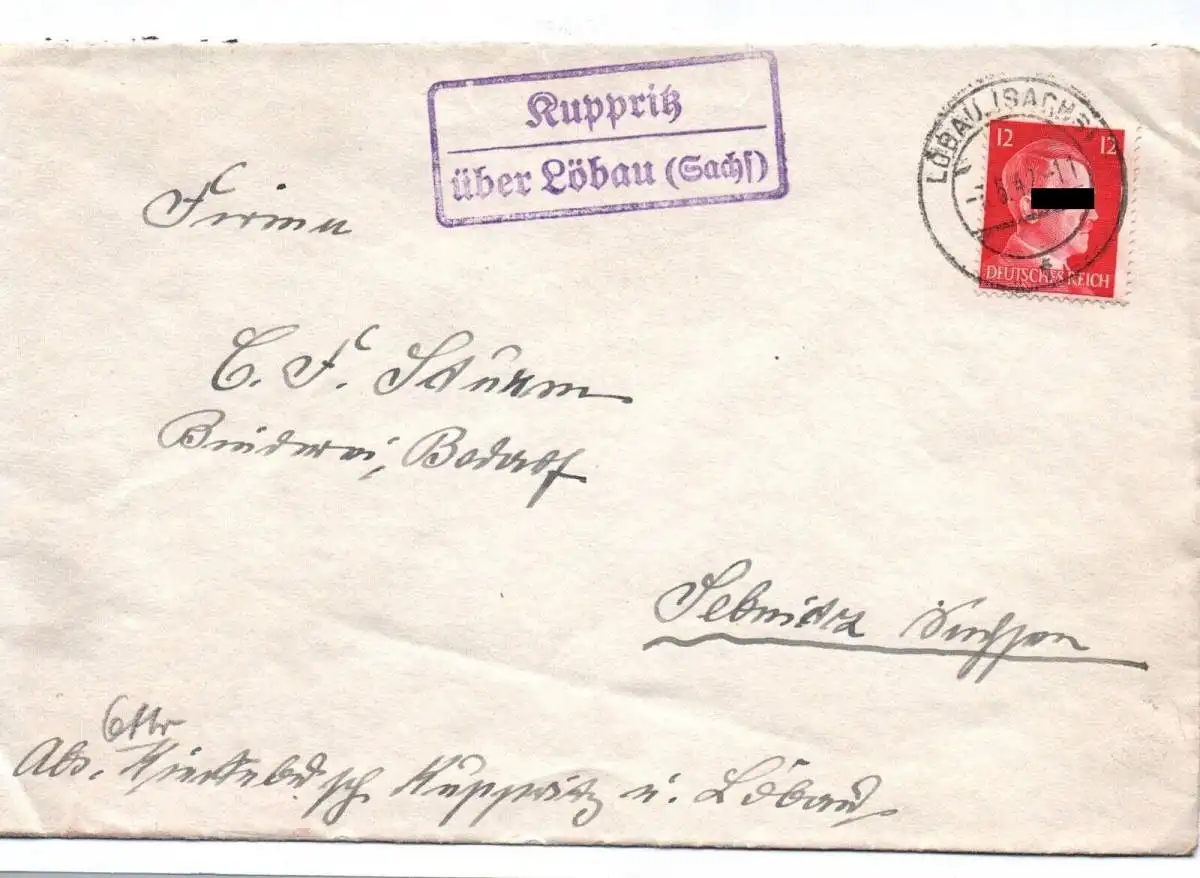 Kuppritz
über Löbau (Sachs)
LÖBAU (SACHS)
12 12
DEUTSCHES REICH
Firma
C. F. Sturm
Binderei, Bedarf
Sebnitz Sachsen
Abs. Kuppritz ü. Löbau